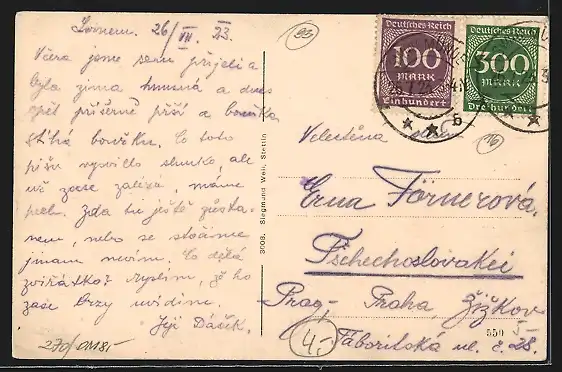 26/VII. 23.
Včera jsme sem přijeli a
byla zima hnusná a dnes
zpět příšerně prší a bouřka
stíhá bouřku. Co toto
píšu vysvitlo slunko, ale
už zase zalézá, máme
pech. Zda tu ještě zůsta-
nem, nebo se stočíme
jinam nevím. Co dělá
zvířátko? Myslím, že ho
zase brzy uvidím.
Jiří
270/01185
93
3008. Siegmund Weil, Stettin
Deutsches Reich
100
MARK
Einhundert
Deutsches Reich
300
MARK
Dreihundert
16
Velectěná
Erna Förnerová.
Tschechoslovakei
Prag, Praha Žižkov
Táboritská ul. č. 28.
550
4,-
5-